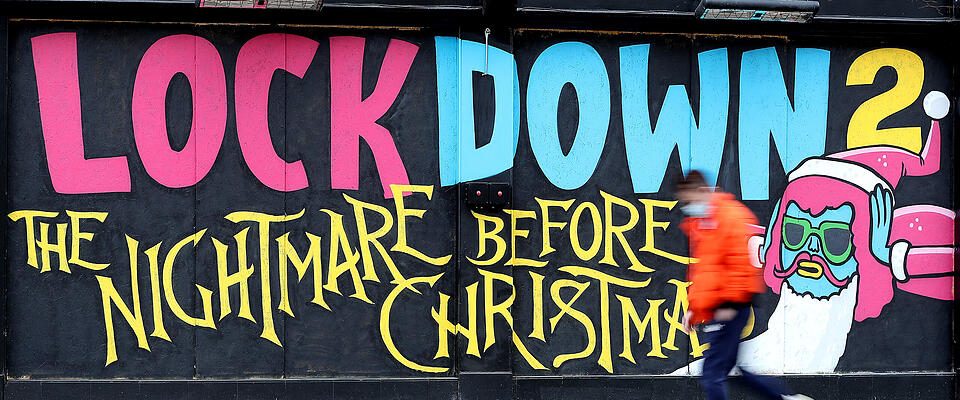 LOCKDOWN 2
THE NIGHTMARE BEFORE
CHRISTMAS